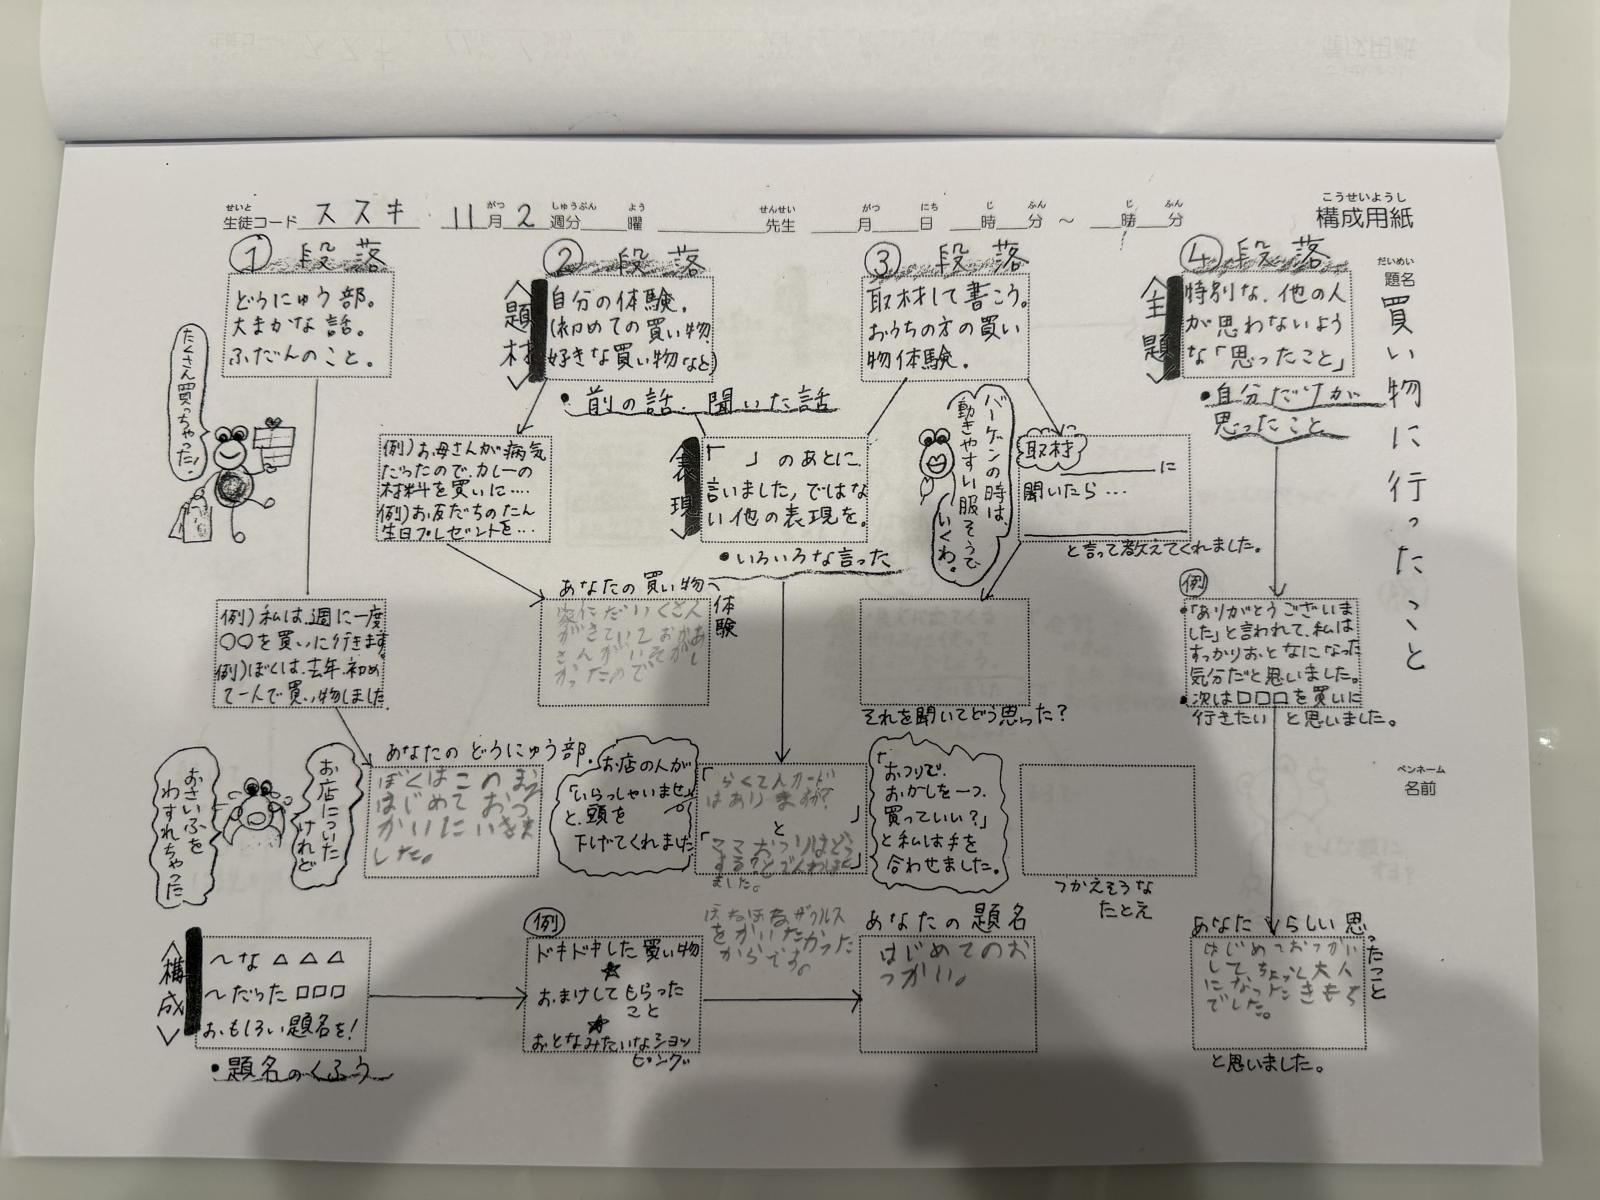 こうせいようし
構成用紙
せいと がつ しゅうぶん よう せんせい がつ にち じ ふん じ ふん
生徒コード ススキ 11月2週分 曜 先生 月 日 時 分 〜 時 分
だいめい
題名
買い物に行ったこと
ペンネーム
名前
① 段落
どうにゅう部。
大まかな話。
ふだんのこと。
たくさん買っちゃった!
例)私は、週に一度
○○を買いに行きます。
例)ぼくは、去年、初め
て一人で買い物しました
あなたの どうにゅう部.
ぼくはこのまえ
はじめて おつ
かいにいきま
した。
お店についた
けれど
おさいふを
わすれちゃった
② 段落
〈題材〉
自分の体験.
(初めての買い物
好きな買い物など)
・前の話、聞いた話
例)お母さんが病気
だったので、カレーの
材料を買いに….
例)お友だちのたん
生日プレゼントを…
あなたの買い物
体験
家にだいくさん
がきていておかあ
さんがいそがし
かったので
③ 段落
取材して書こう。
おうちの方の買い
物体験.
表現
「 」のあとに、
言いました,ではな
い他の表現を.
・いろいろな言った
お店の人が
「いらっしゃいませ」
と、頭を
下げてくれました
「らくてんカード
はありますか?」
と
「ママおつりはどう
する?」とでんわしました。
ほねほねザウルス
をかいたかった
からです。
「おつりで、
おかしを一つ、
買っていい?」
と私は手を
合わせました。
バーゲンの時は、
動きやすい服そうで
いくわ。
取材
に
聞いたら…
と言って教えてくれました。
それを聞いてどう思った?
つかえそうな
たとえ
④ 段落
主題
特別な、他の人
が思わないよう
な「思ったこと」
・自分だけが
思ったこと
例
・「ありがとうございま
した」と言われて、私は
すっかりおとなになった
気分だと思いました。
・次は□□□を買いに
行きたい と思いました。
あなたらしい思ったこと
はじめておつかい
して、ちょっと大人
になったきもち
でした。
と思いました。
〈構成〉
〜な △△△
〜だった □□□
おもしろい題名を!
・題名のくふう
例
ドキドキした買い物
☆
おまけしてもらった
こと
☆
おとなみたいなショッ
ピング
あなたの題名
はじめてのお
つかい。